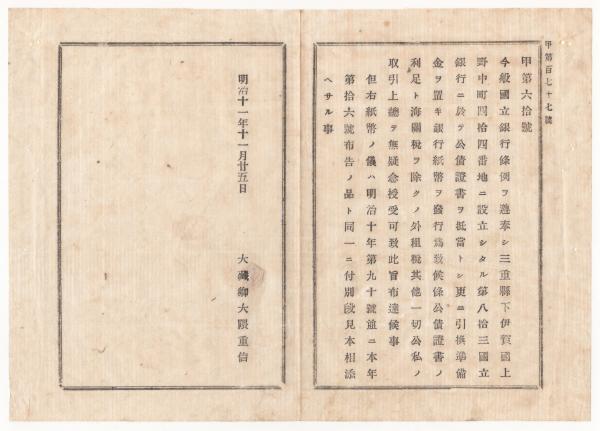 甲第百七十七號
甲第六拾號
今般國立銀行條例ヲ遵奉シ三重縣下伊賀國上
野中町四拾四番地ニ設立シタル第八拾三國立
銀行ニ於テ公債證書ヲ抵當トシ更ニ引換準備
金ヲ置キ銀行紙幣ヲ發行爲致候條公債證書ノ
利足ト海關稅ヲ除クノ外租稅其他一切公私ノ
取引上總テ無疑念授受可致此旨布達候事
但右紙幣ノ儀ハ明治十年第九十號並ニ本年
第拾六號布告ノ品ト同一ニ付別段見本相添
ヘサル事
明治十一年十一月廿五日
大藏卿大隈重信